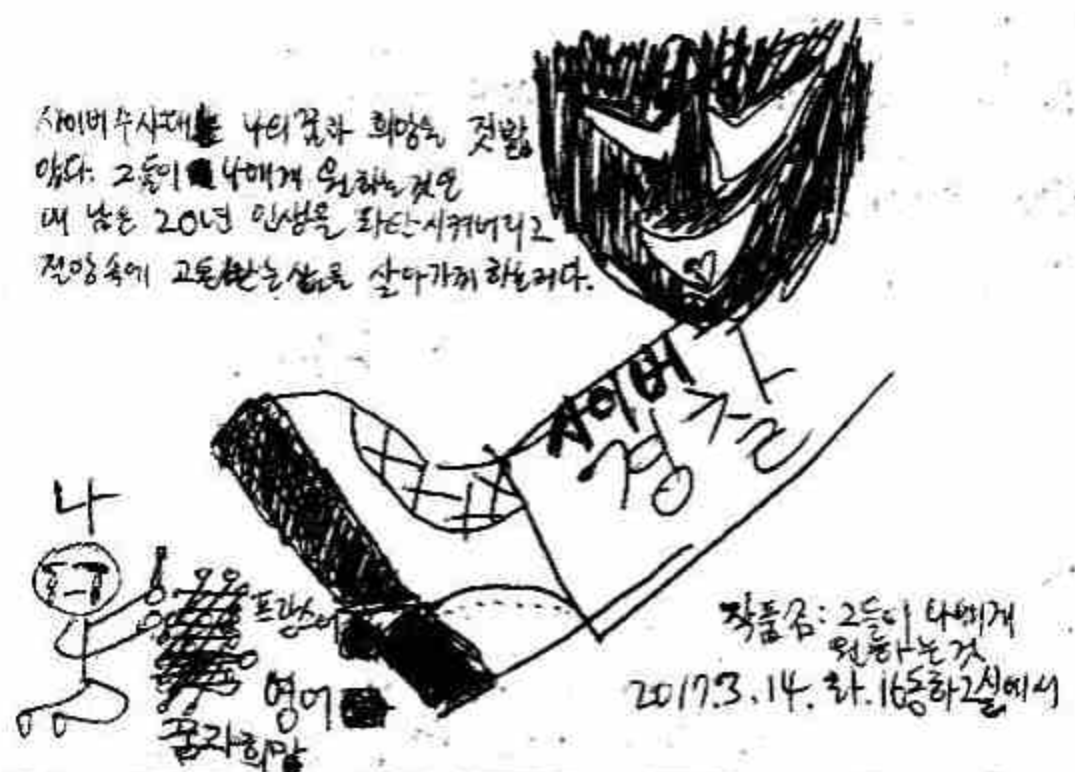 사이버수사대는 나의꿈과 희망을 짓밟
았다. 그들이 나에게 원하는것은
내 남은 20년 인생을 파탄시켜버리고
절망속에 고통받는삶을 살아가게 하는거다.
사이버
경찰
나
프랑스어
영어
꿈과희망
작품명: 그들이 나에게
원하는것
2017.3.14. 화. 16동하2실에서